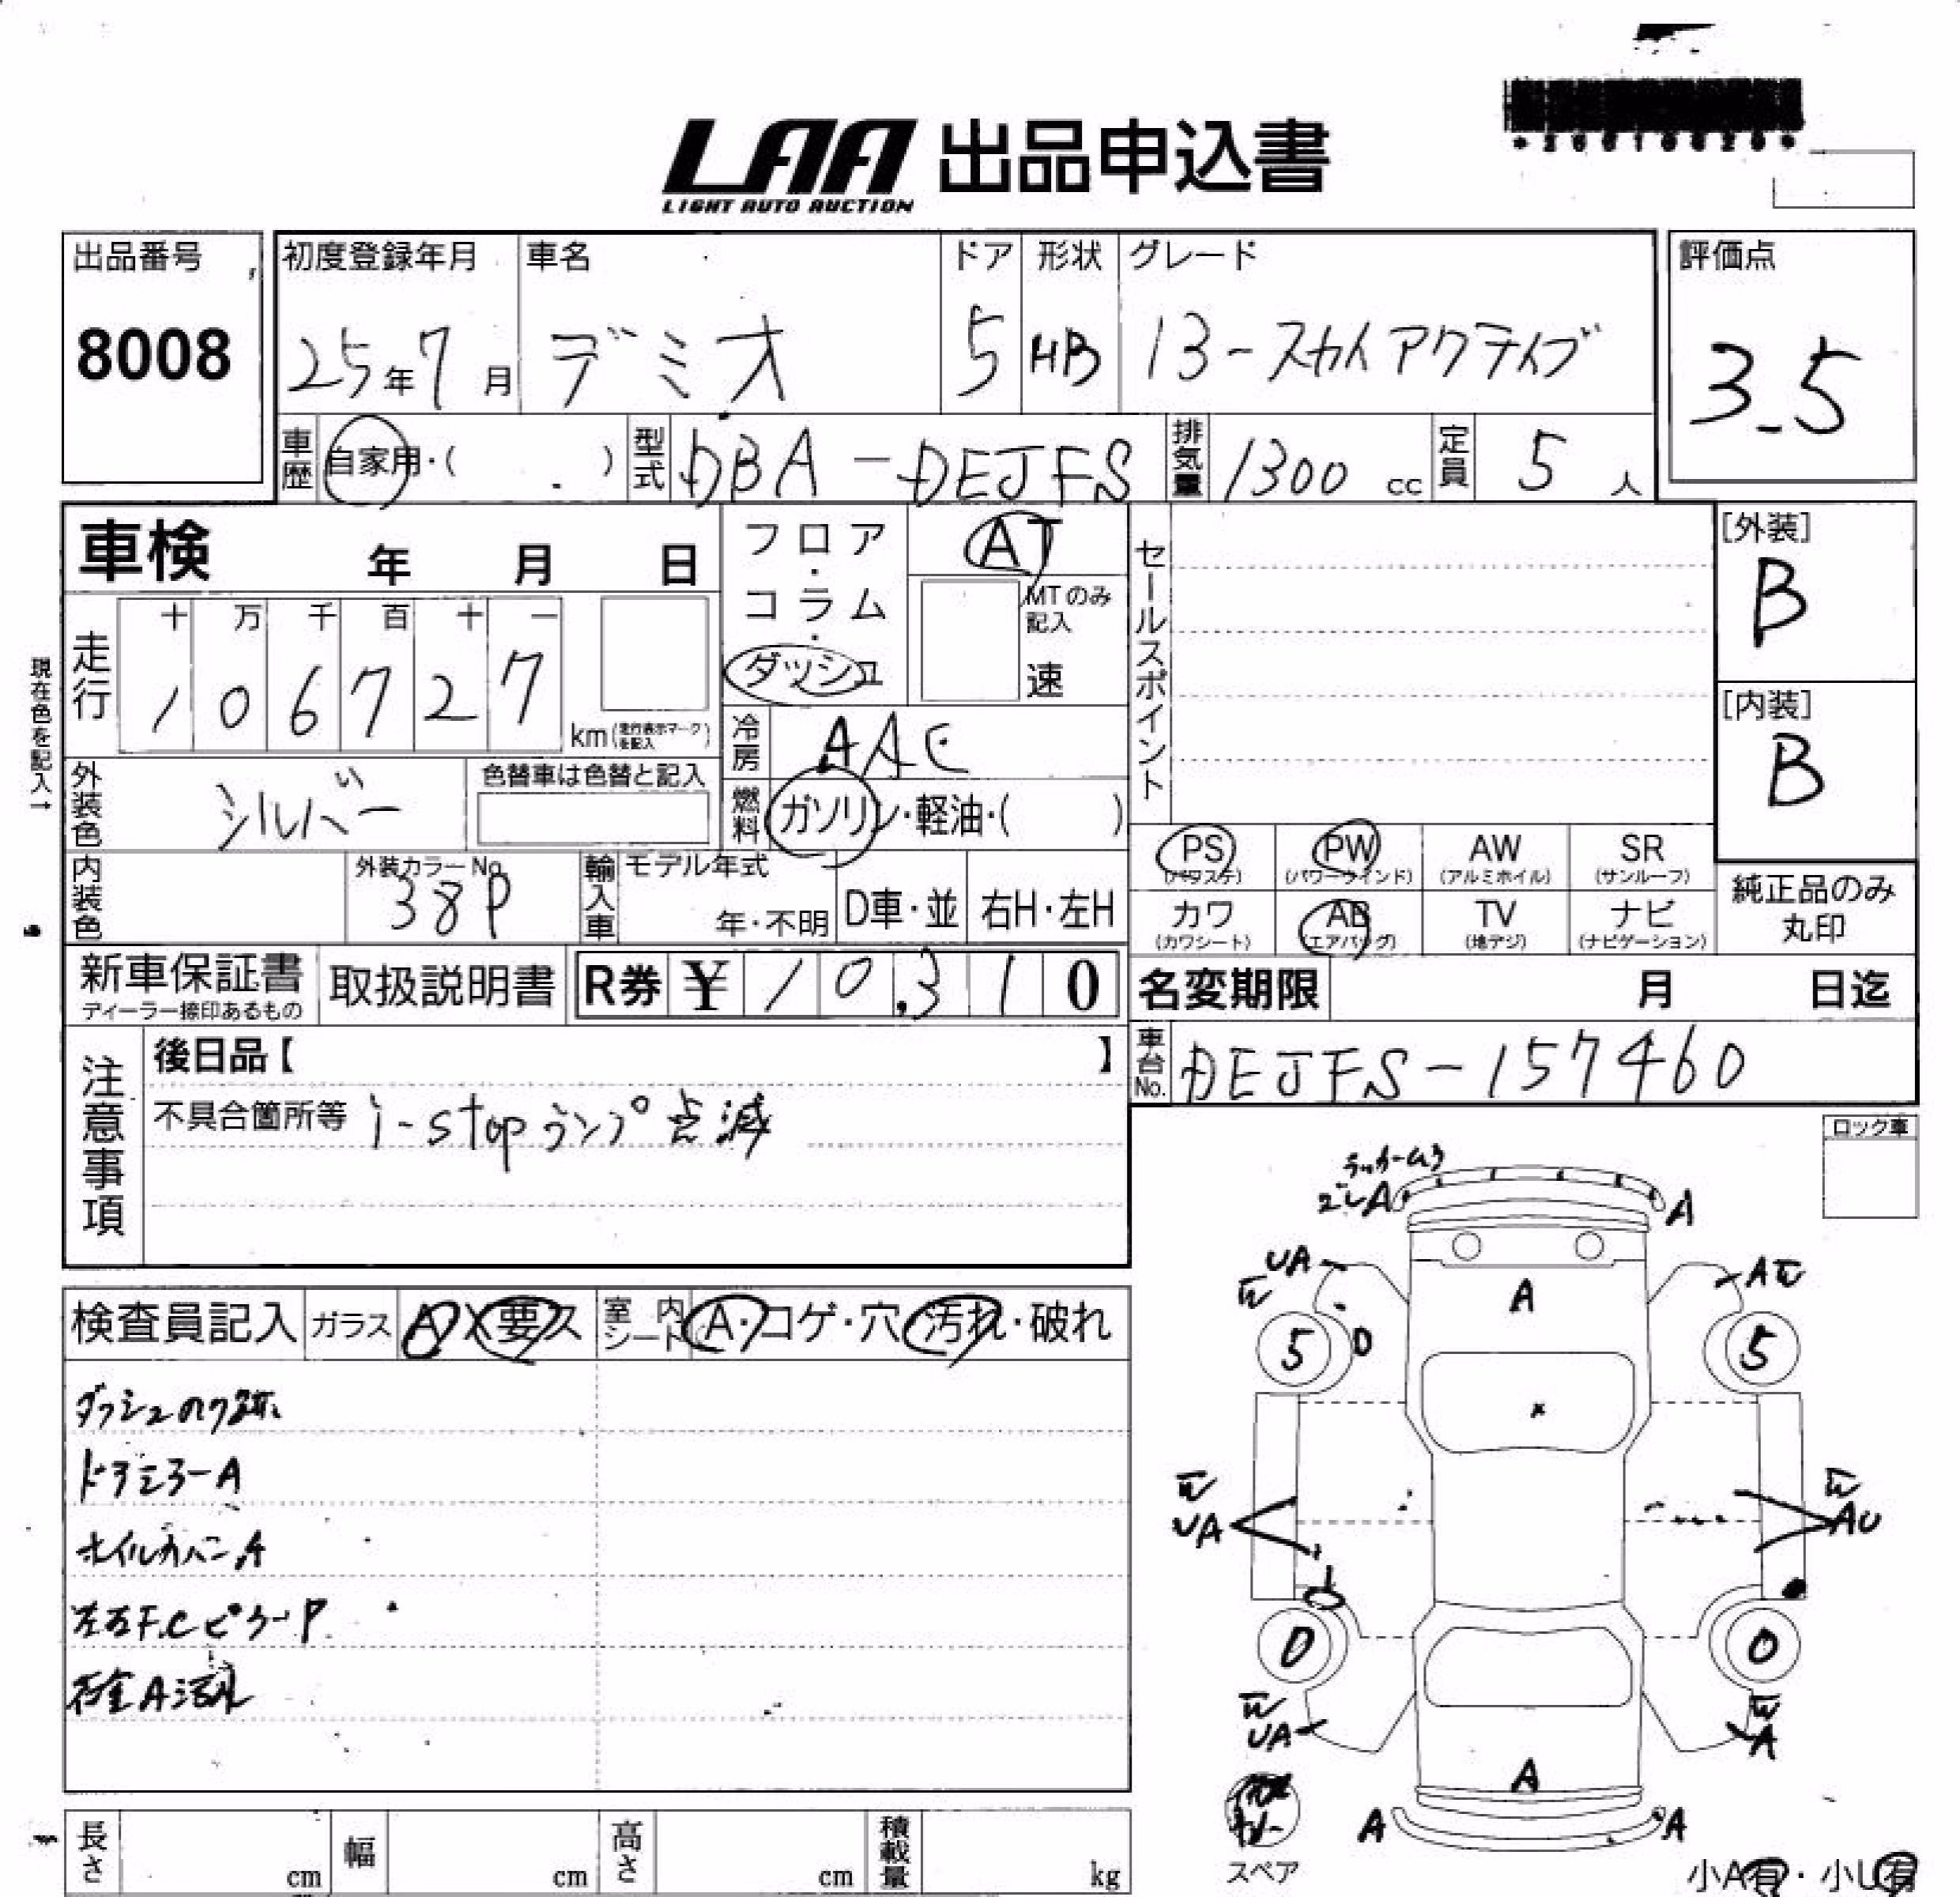 LAA 出品申込書
LIGHT AUTO AUCTION
出品番号
8008
初度登録年月
25年7月
車名
デミオ
ドア
5
形状
HB
グレード
13-スカイアクティブ
評価点
3.5
車歴
自家用・( )
型式
DBA-DEJFS
排気量
1300 cc
定員
5 人
車検 年 月 日
フロア・コラム・ダッシュ
AT
MTのみ記入
速
セールスポイント
[外装]
B
[内装]
B
現在色を記入→
走行
十 万 千 百 十 一
1 0 6 7 2 7
km(走行表示マークを記入)
冷房
AAC
外装色
シルバー
色替車は色替と記入
燃料
ガソリン・軽油・( )
内装色
外装カラーNo.
38P
輸入車
モデル年式
年・不明
D車・並
右H・左H
PS
(パワステ)
PW
(パワーウィンド)
AW
(アルミホイル)
SR
(サンルーフ)
カワ
(カワシート)
AB
(エアバッグ)
TV
(地デジ)
ナビ
(ナビゲーション)
純正品のみ
丸印
新車保証書
ディーラー捺印あるもの
取扱説明書
R券 ¥ 10,310
名変期限 月 日迄
車台No.
DEJFS-157460
注意事項
後日品【 】
不具合箇所等 i-stopランプ点滅
ロック車
検査員記入
ガラス
A X 要ス
室内シート
A・コゲ・穴・汚れ・破れ
ドアミラーA
ホイルカバーA
左右F.CピラーP
A A
UA W
A W
A
5 D
5
W
UA
W
AU
0
0
W
UA
W
A
A
A A
スペア
小A有・小U有
長さ cm
幅 cm
高さ cm
積載量 kg